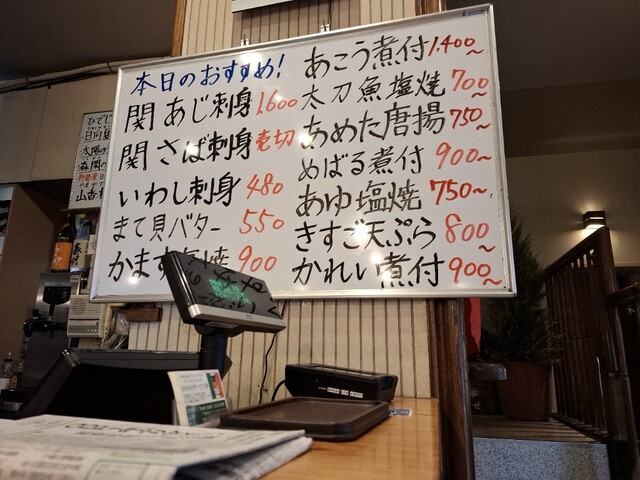 本日のおすすめ!
関 あじ刺身 1,600
関 さば刺身 売切
いわし刺身 480
まて貝バター 550
かます塩焼 900
あこう煮付 1,400~
太刀魚塩焼 700~
あめた唐揚 750~
めばる煮付 900~
あゆ塩焼 750~
きすご天ぷら 800~
かれい煮付 900~